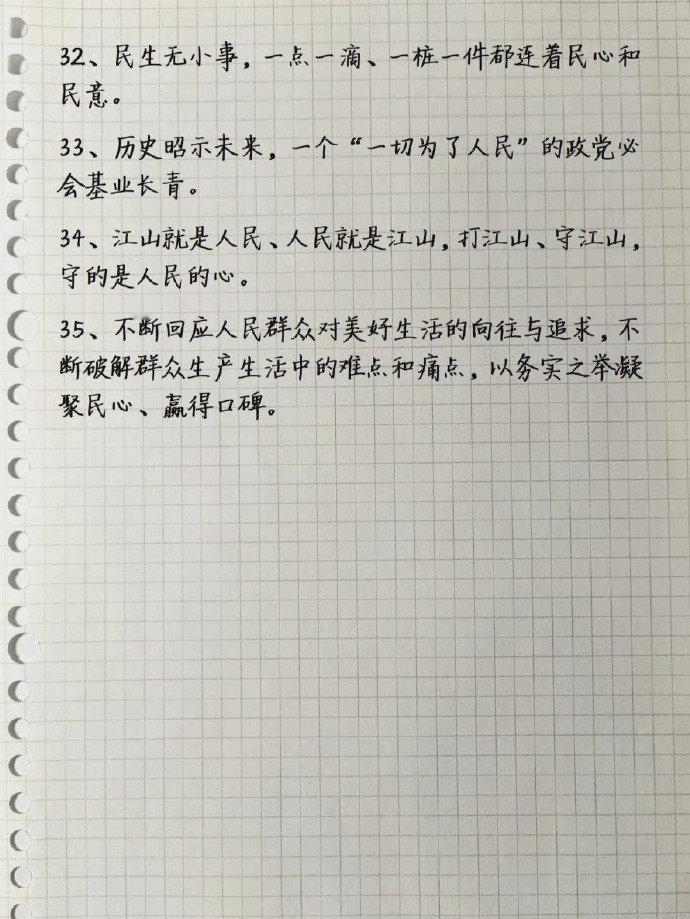 32、民生无小事，一点一滴、一桩一件都连着民心和
民意。
33、历史昭示未来，一个“一切为了人民”的政党必
会基业长青。
34、江山就是人民、人民就是江山，打江山、守江山，
守的是人民的心。
35、不断回应人民群众对美好生活的向往与追求，不
断破解群众生产生活中的难点和痛点，以务实之举凝
聚民心、赢得口碑。